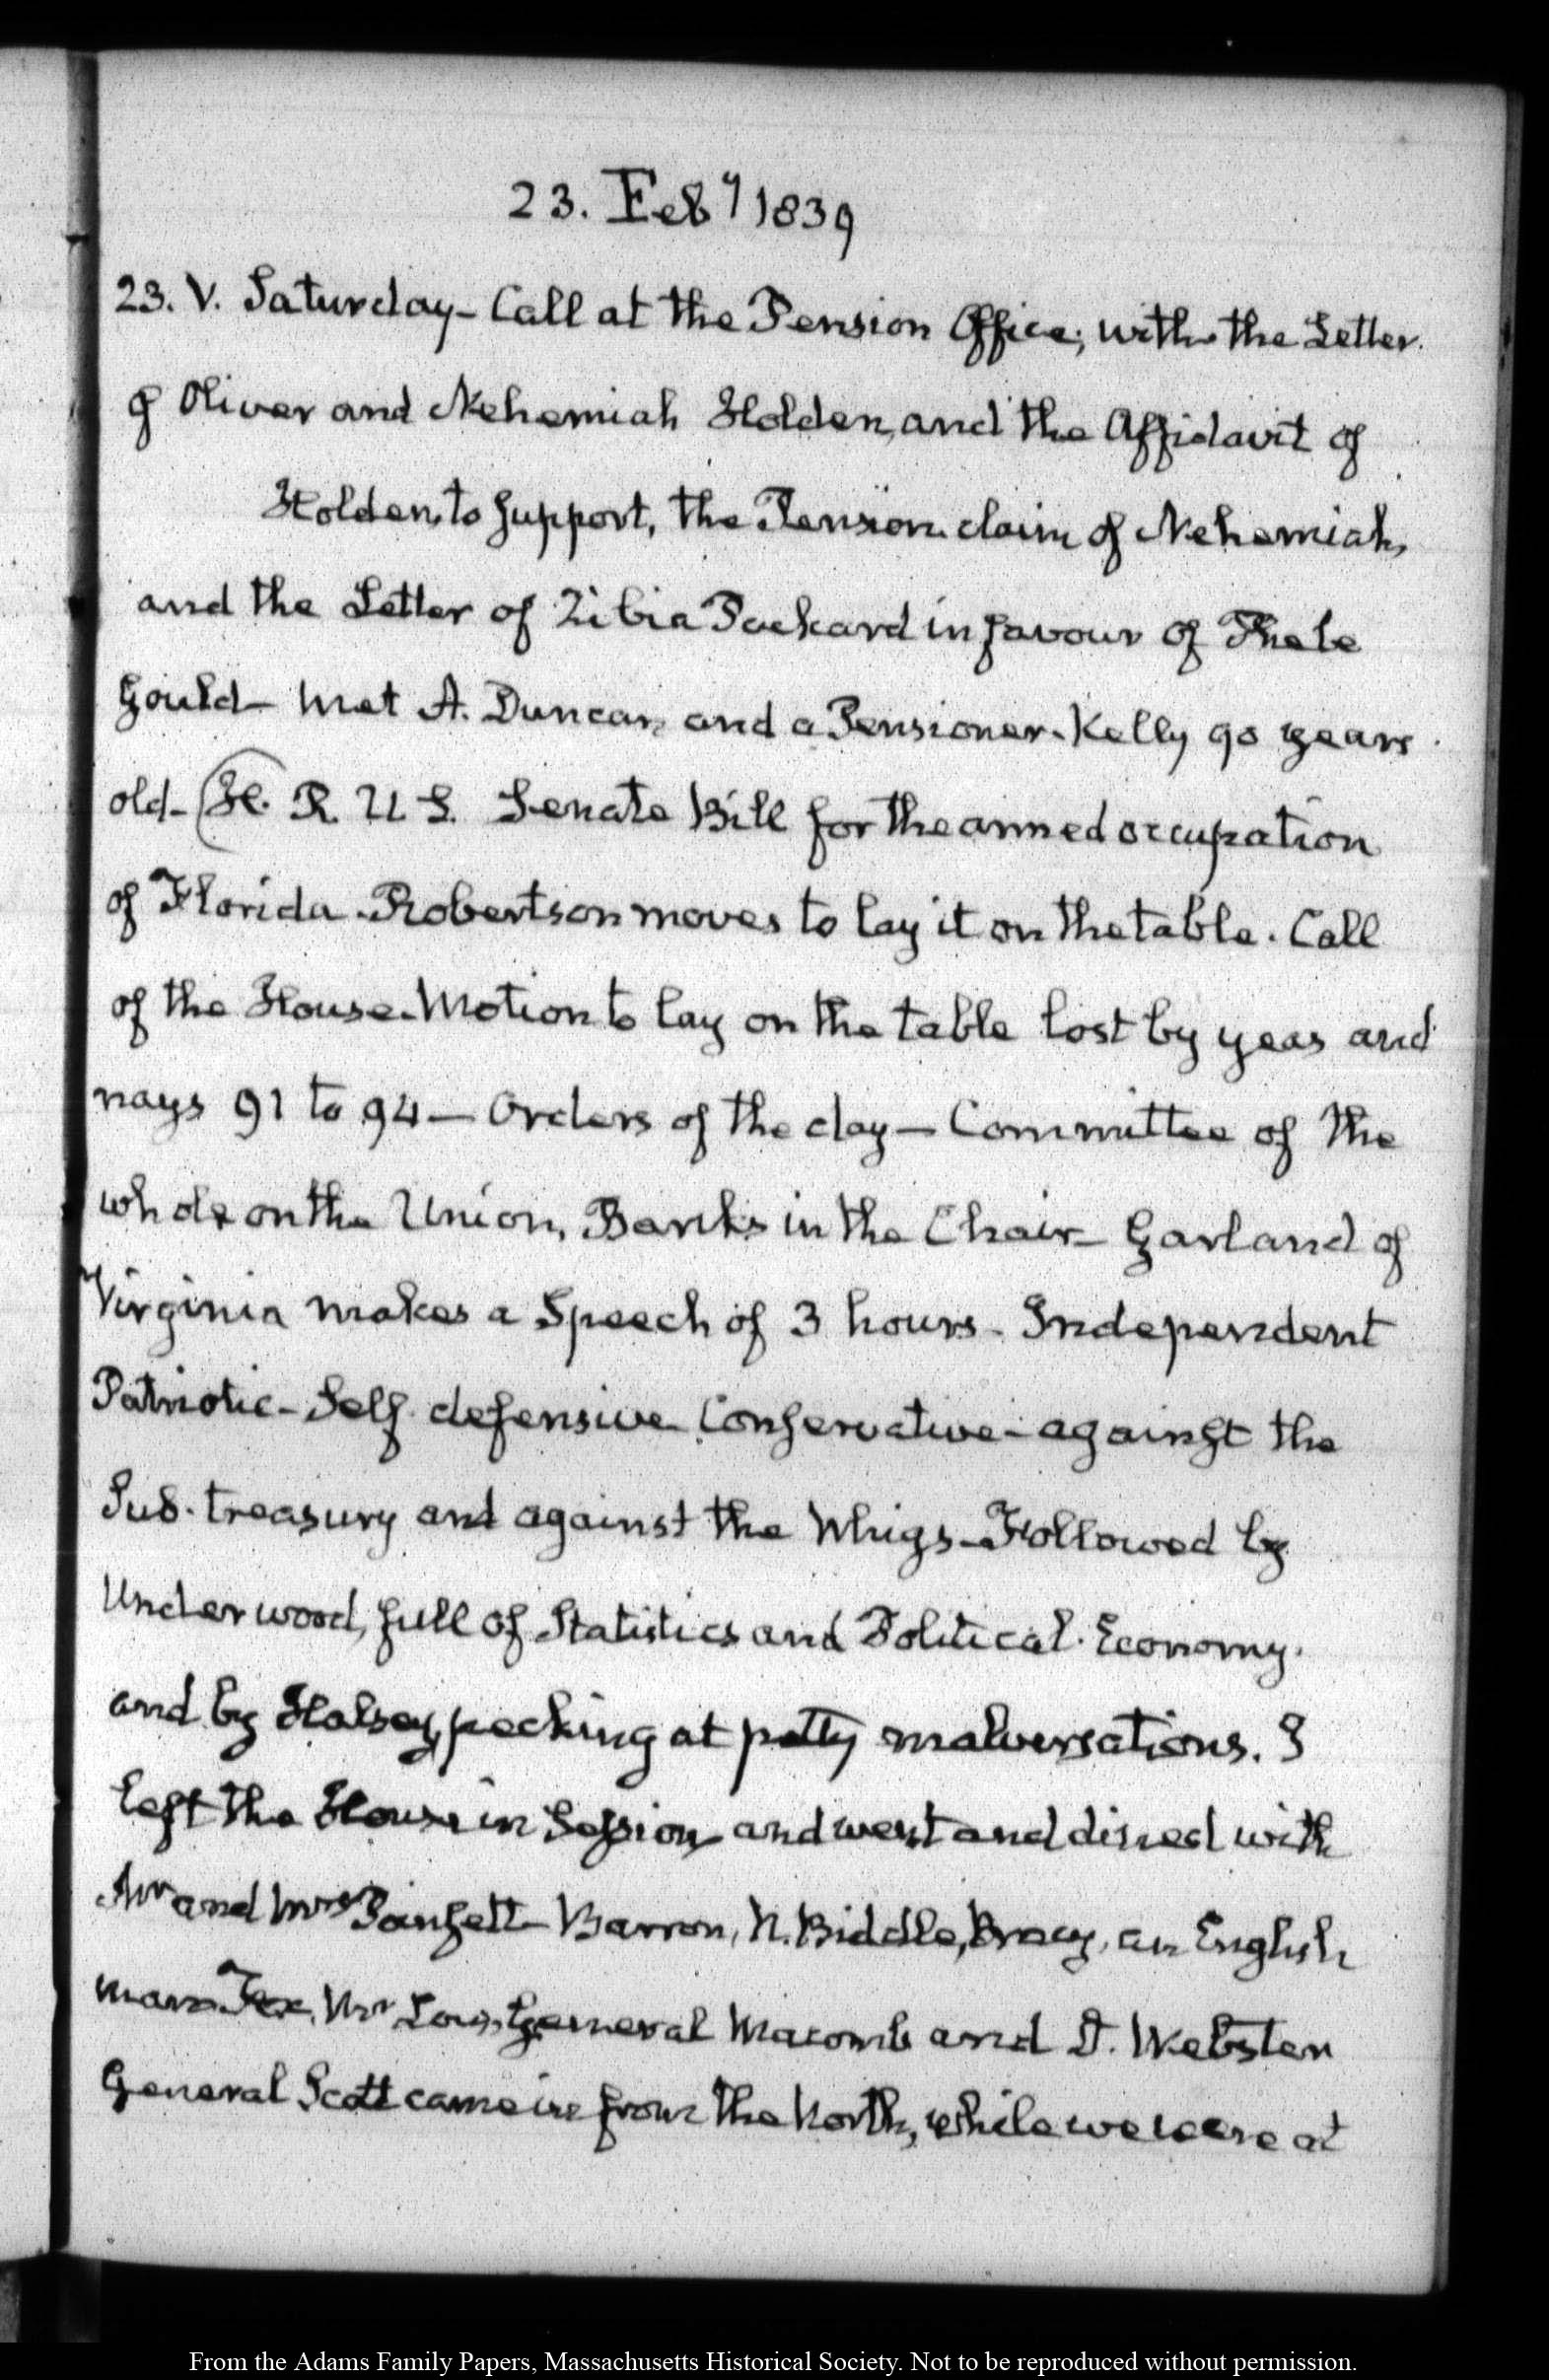 23. Feby 1839
23. V. Saturday – Call at the Pension Office, with the Letter
of Oliver and Nehemiah Holden, and the Affidavit of
Holden, to support, the Pension claim of Nehemiah,
and the Letter of Zibia Packard in favour of Phebe
Gould – Met A. Duncan and a Pensioner. Kelly 90 years
old – H. R. U S. Senate Bill for the armed occupation
of Florida. Robertson moves to lay it on the table. Call
of the House. Motion to lay on the table lost by yeas and
nays 91 to 94 – Orders of the day – Committee of the
whole on the Union, Banks in the Chair – Garland of
Virginia makes a Speech of 3 hours – Independent
Patriotic – Self defensive Conservative – against the
Sub-treasury and against the Whigs – Followed by
Underwood, full of Statistics and Political Economy.
and by Halsey, pecking at petty malversations. I
left the House in Session and went and dined with
Mr and Mrs Poinsett – Barron, N. Biddle, an English
man Fox, Mr General Macomb and D. Webster
General Scott came in from the North, while we were at
From the Adams Family Papers, Massachusetts Historical Society. Not to be reproduced without permission.